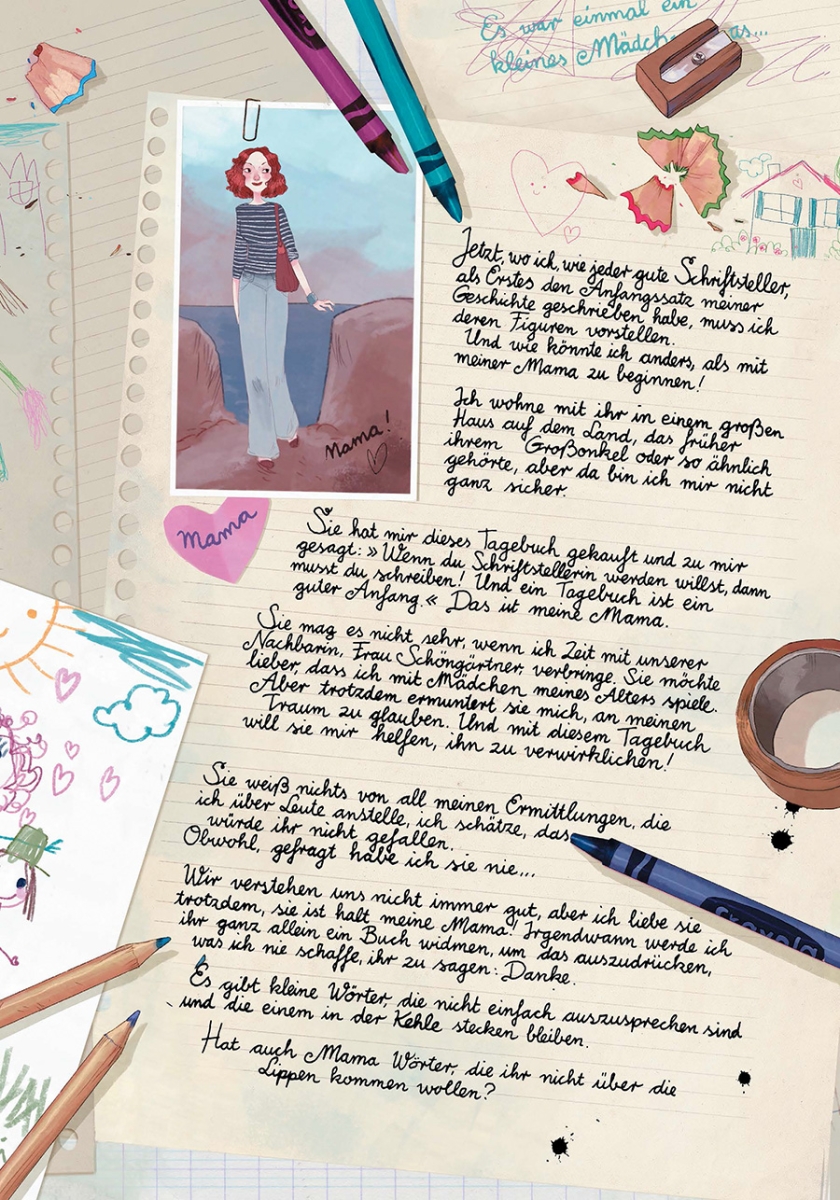 Es war einmal ein
kleines Mädch as...
Mama!
Jetzt, wo ich, wie jeder gute Schriftsteller,
als Erstes den Anfangssatz meiner
Geschichte geschrieben habe, muss ich
deren Figuren vorstellen.
Und wie könnte ich anders, als mit
meiner Mama zu beginnen!
Ich wohne mit ihr in einem großen
Haus auf dem Land, das früher
ihrem Großonkel oder so ähnlich
gehörte, aber da bin ich mir nicht
ganz sicher.
Mama
Sie hat mir dieses Tagebuch gekauft und zu mir
gesagt: »Wenn du Schriftstellerin werden willst, dann
musst du schreiben! Und ein Tagebuch ist ein
guter Anfang.« Das ist meine Mama.
Sie mag es nicht sehr, wenn ich Zeit mit unserer
Nachbarin, Frau Schöngärtner, verbringe. Sie möchte
lieber, dass ich mit Mädchen meines Alters spiele.
Aber trotzdem ermuntert sie mich, an meinen
Traum zu glauben. Und mit diesem Tagebuch
will sie mir helfen, ihn zu verwirklichen!
Sie weiß nichts von all meinen Ermittlungen, die
ich über Leute anstelle, ich schätze, das
würde ihr nicht gefallen.
Obwohl, gefragt habe ich sie nie...
Wir verstehen uns nicht immer gut, aber ich liebe sie
trotzdem, sie ist halt meine Mama! Irgendwann werde ich
ihr ganz allein ein Buch widmen, um das auszudrücken,
was ich nie schaffe, ihr zu sagen: Danke.
Es gibt kleine Wörter, die nicht einfach auszusprechen sind
und die einem in der Kehle stecken bleiben.
Hat auch Mama Wörter, die ihr nicht über die
Lippen kommen wollen?
Crayola